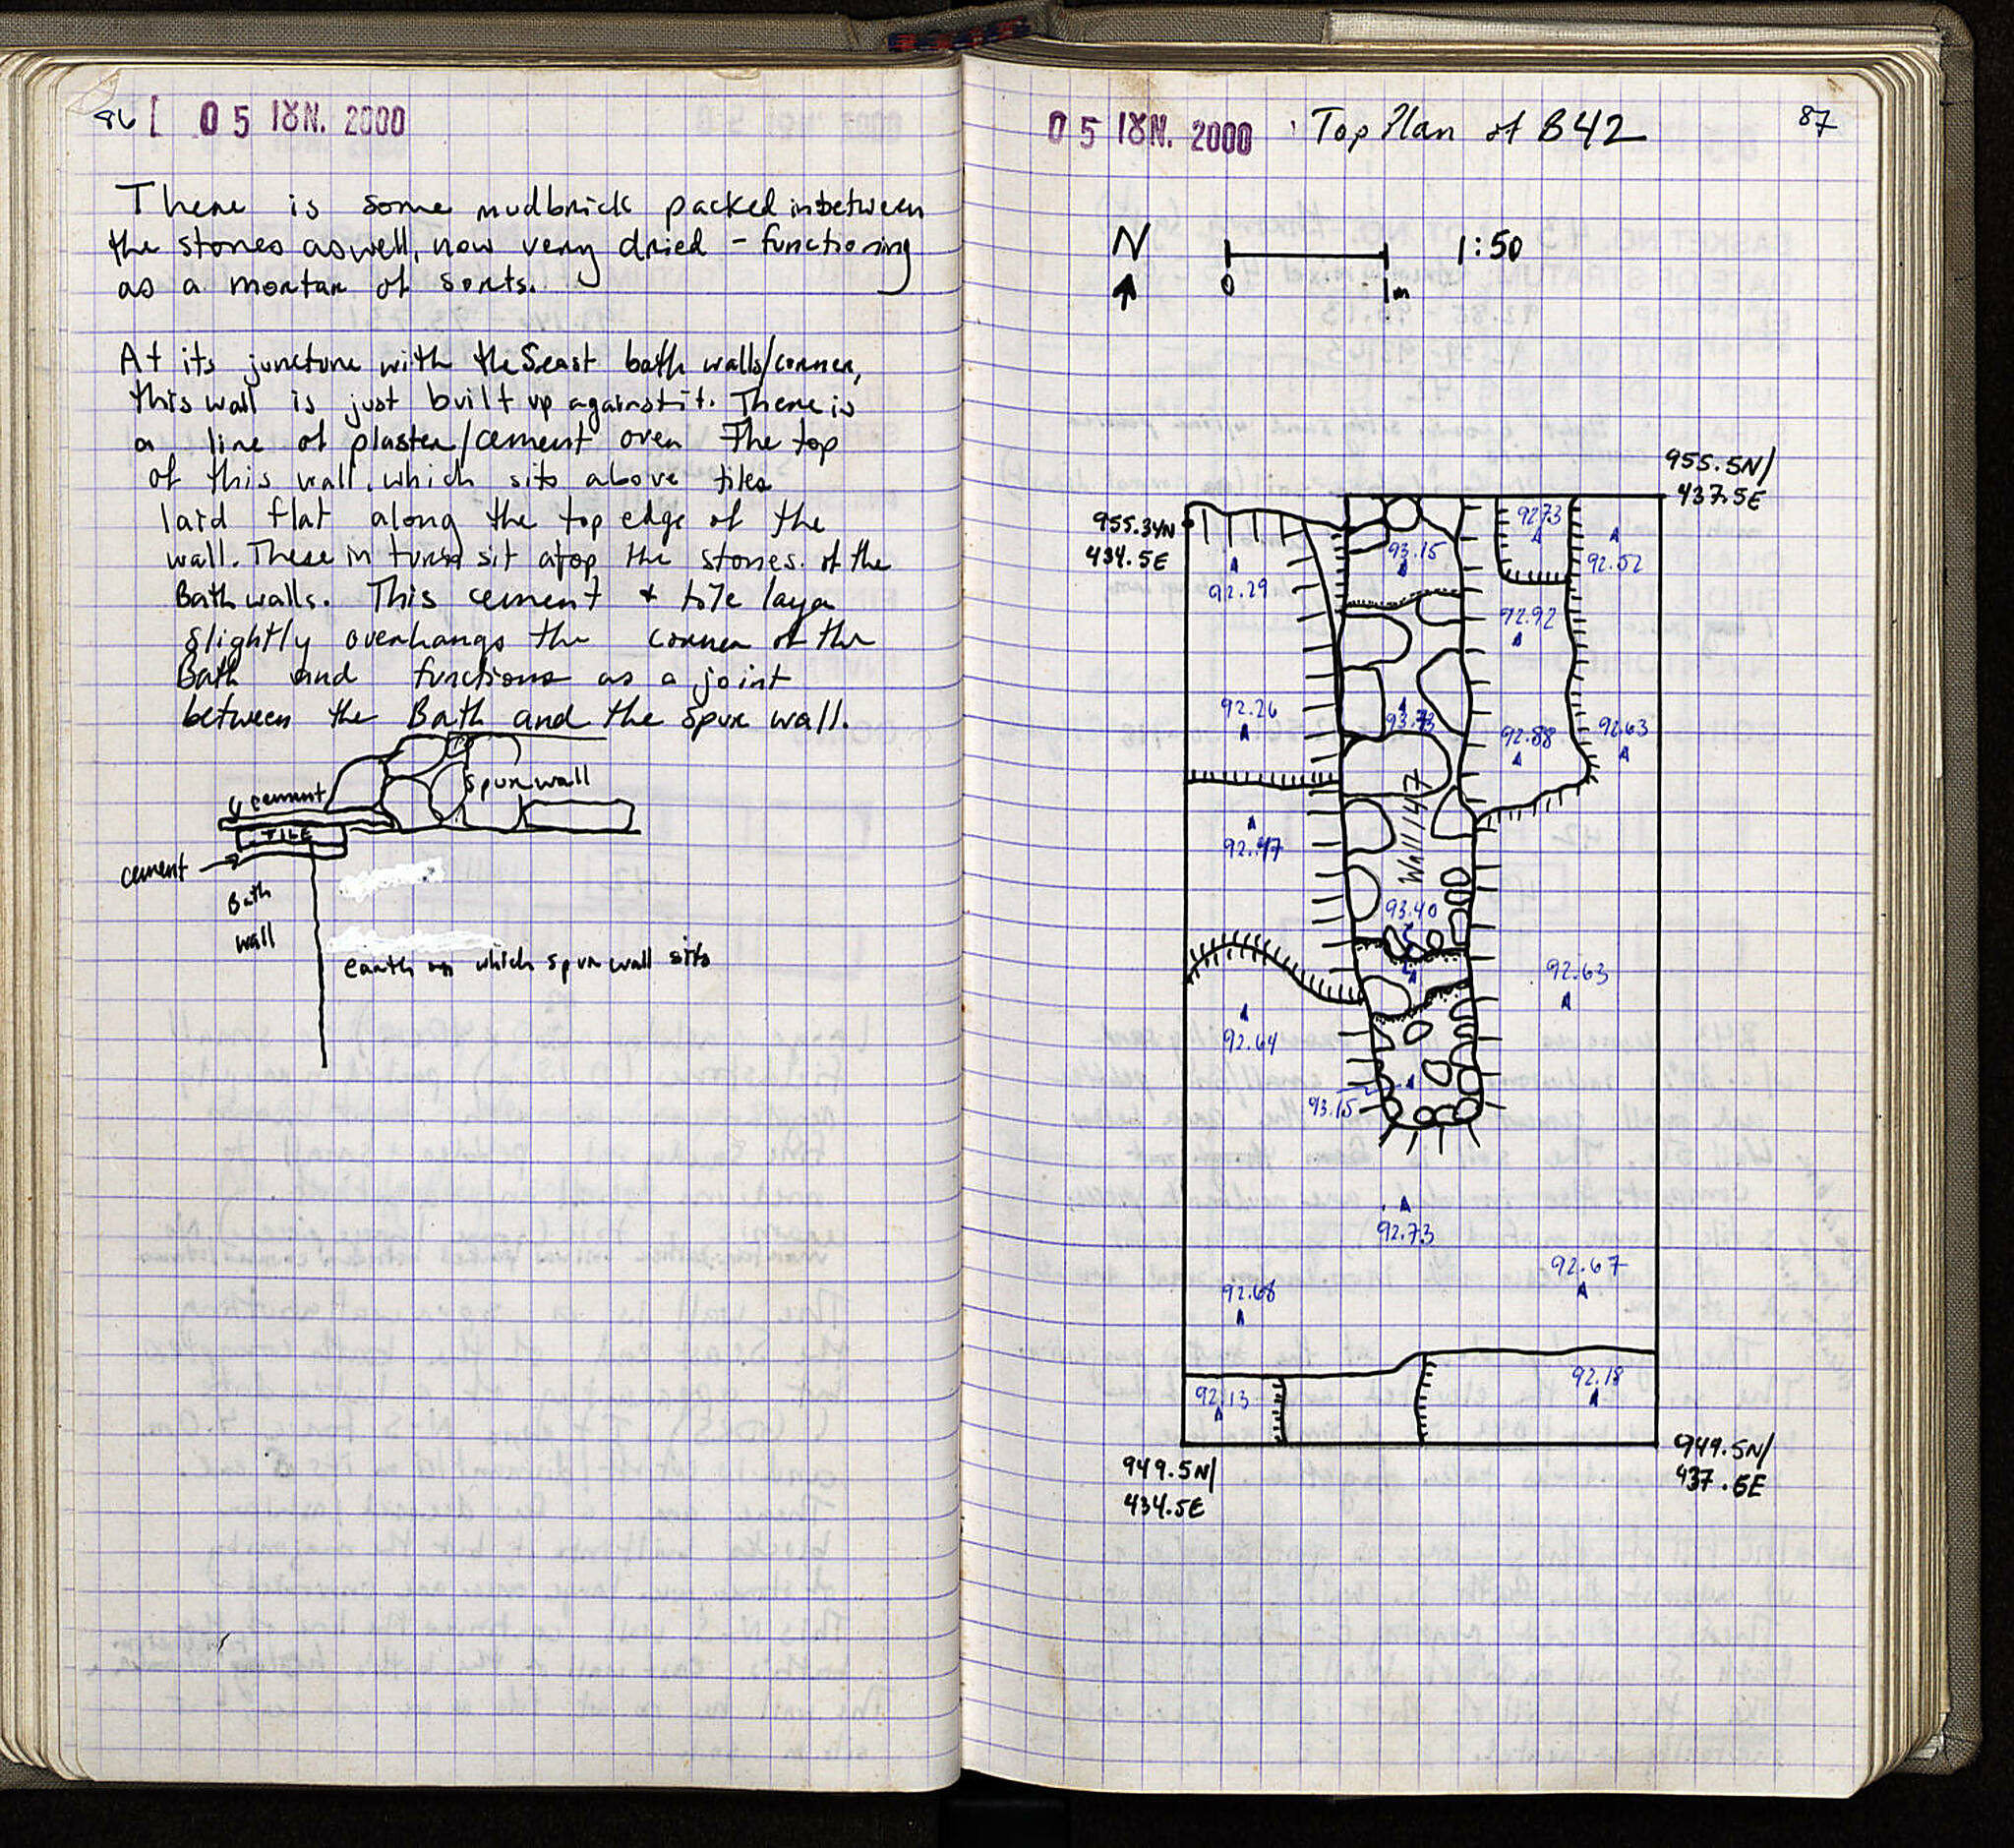 86 05 IȣN. 2000
There is some mudbrick packed inbetween
the stones aswell, now very dried - functioning
as a mortar of sorts.
At its juncture with the Seast bath walls/corner,
this wall is just built up against it. There is
a line of plaster/cement over the top
of this wall, which sits above tiles
laid flat along the top edge of the
wall. These in turn sit atop the stones of the
Bath walls. This cement + tile layer
slightly overhangs the corner of the
Bath and functions as a joint
between the Bath and the spur wall.
spur wall
cement
TILE
cement
Bath
wall
earth on which spur wall sits
05 IȣN. 2000 Top Plan of B42 87
N
1:50
0 1m
955.5N/
437.5E
955.34N
434.5E
92.73
93.15
92.52
92.29
92.92
92.26
92.88
92.63
92.47
Wall 147
93.40
92.63
92.64
93.15
92.73
92.67
92.68
92.18
92.13
949.5N/
437.5E
949.5N/
434.5E